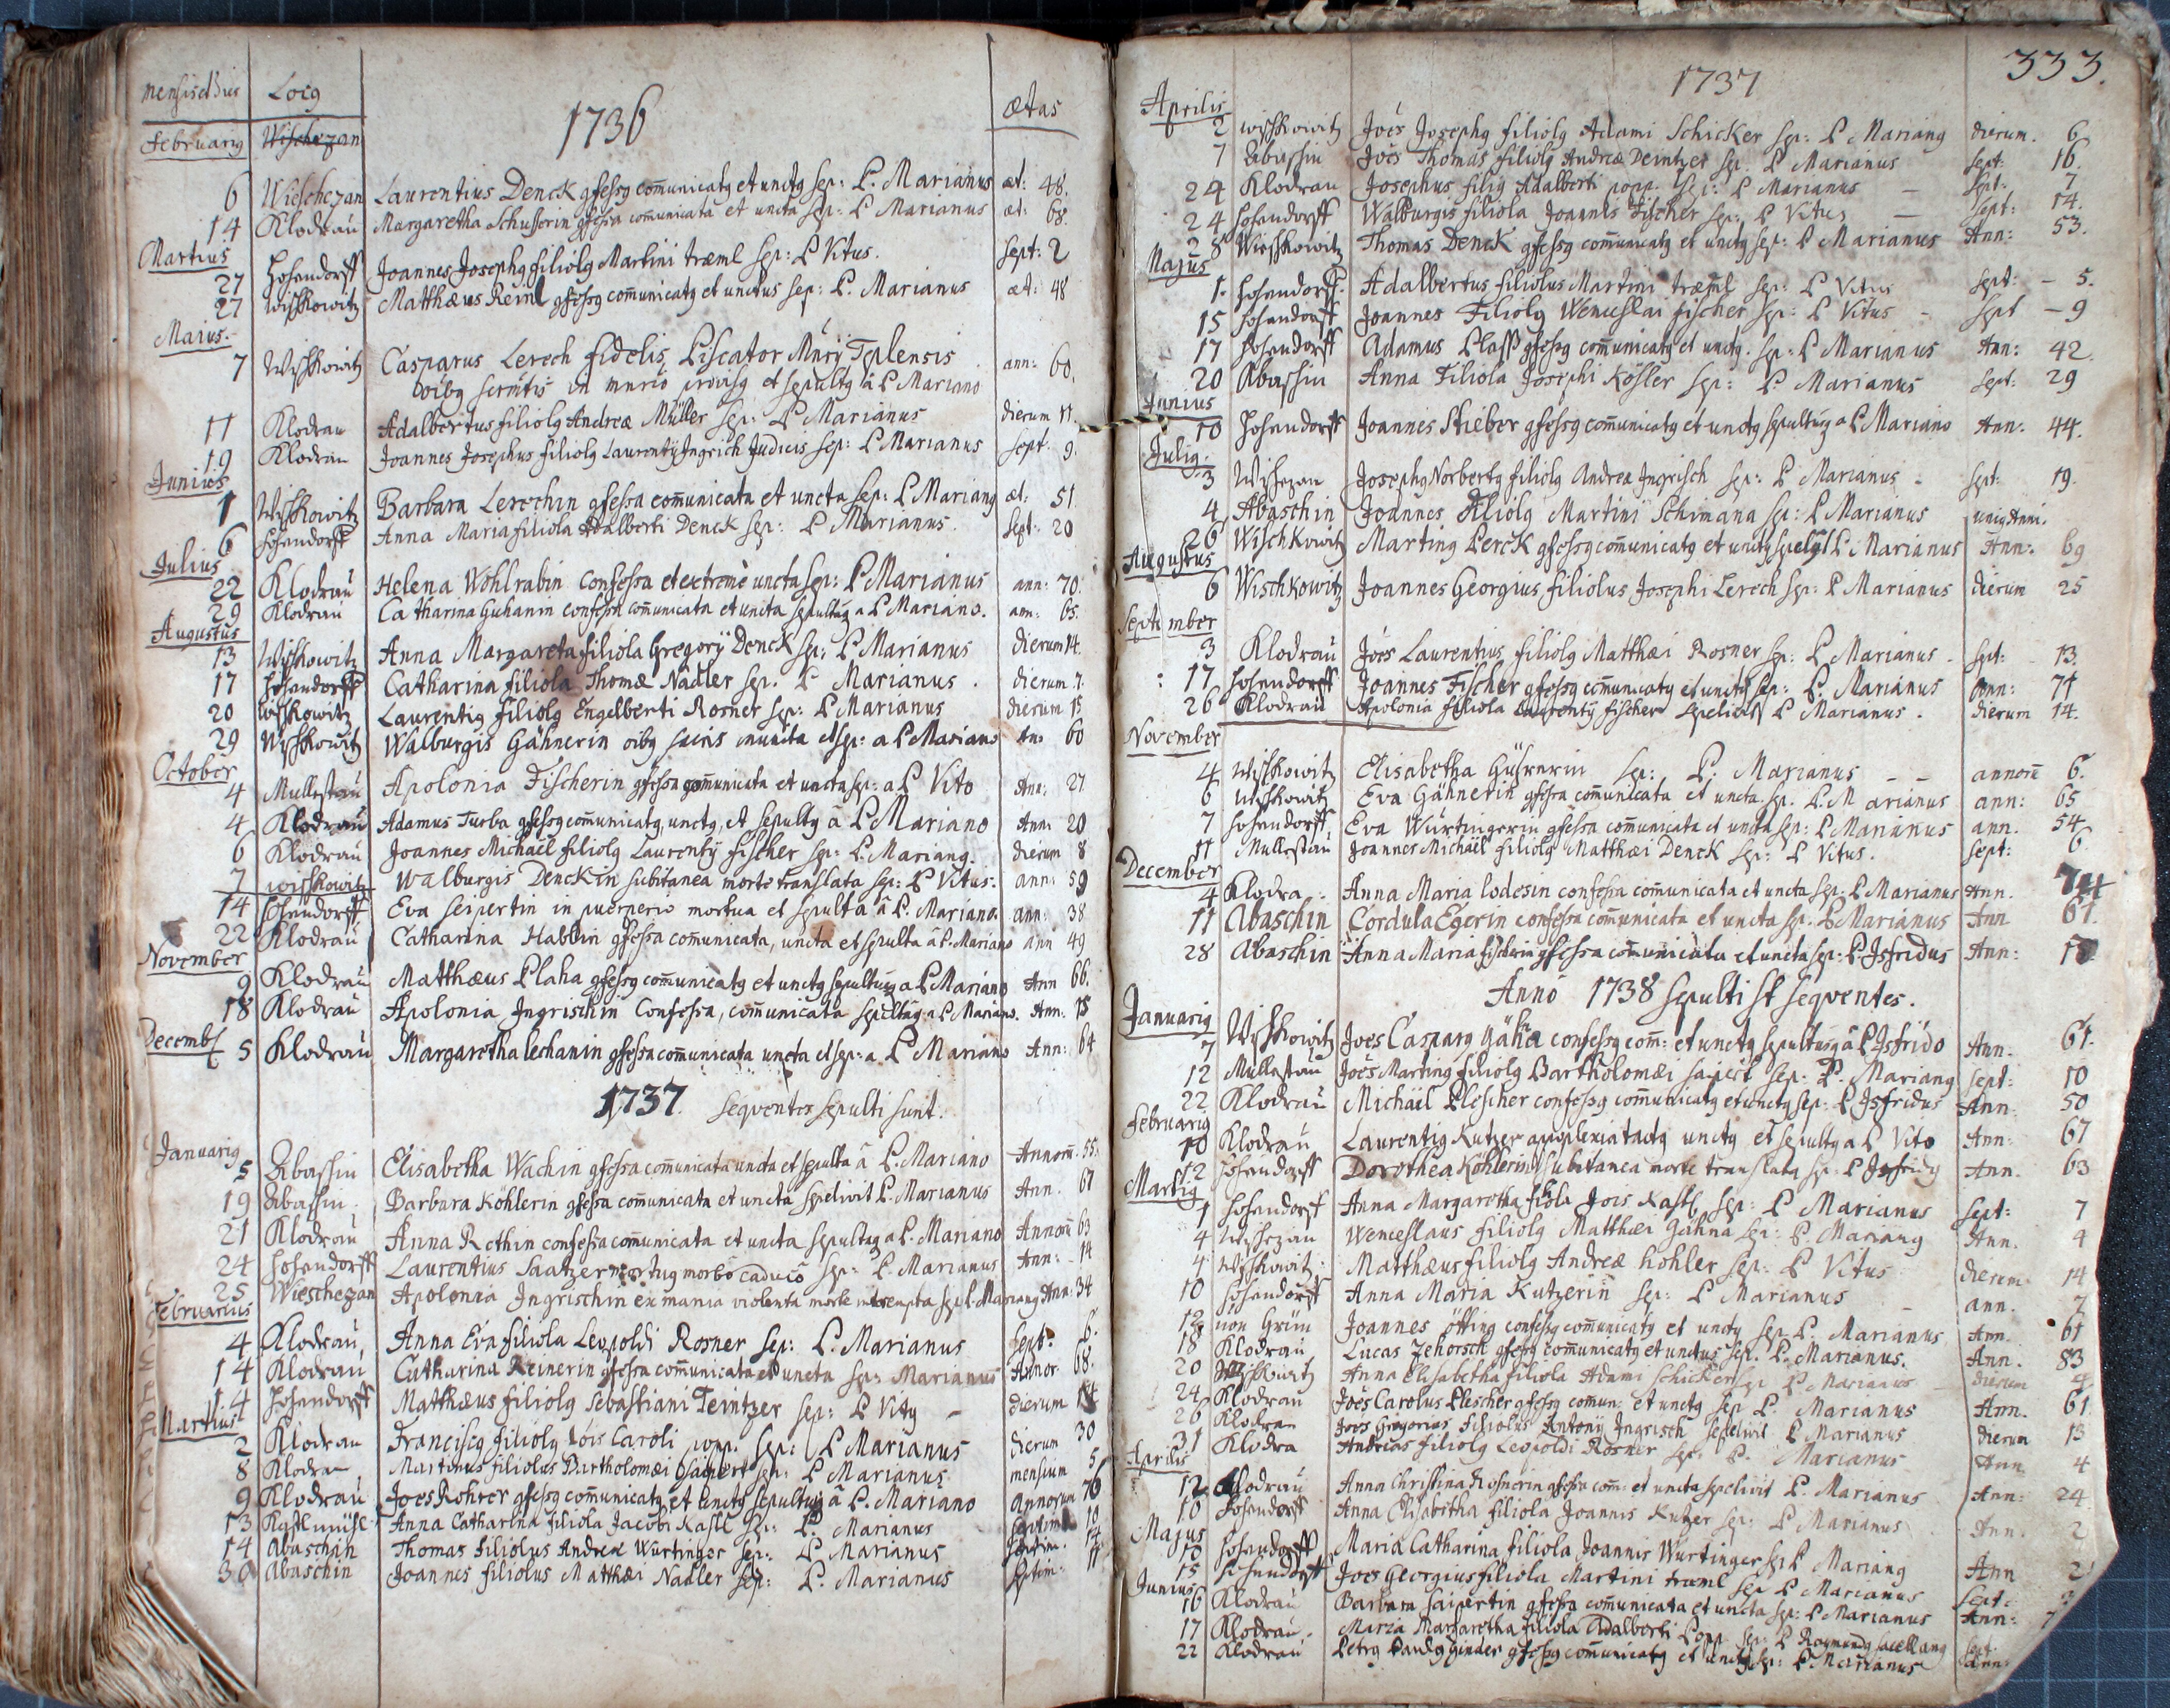 Mensis et Dies Locus ætas
1736
Februarius Wischezan
6 Wieschezan Laurentius Denck gfessg com̄unicatg et unctg sep: P. Marianus æt: 48.
14 Klodrau Margaretha Schusserin gfessa communicata et uncta sep: P Marianus æt: 68.
Martius
27 Hohendorff Joannes Josephg filiolg Martini træml sep: P Vitus. Sept: 2
27 Wischkowitz Matthæus Reinl gfessg com̄unicatg et unctus sep: P. Marianus æt: 48
Maius.
7 Wischkowitz Casparus Lerech fidelis Piscator Teplensis ann: 60.
oibg et sepultg â P Mariano
11 Klodrau Adalbertus filiolg Andreæ Müller sep: P Marianus dierum 11
19 Klodrau Joannes Josephus filiolg Laurentÿ Ingrisch Judicis sep: P Marianus sept: 9.
Junius
1 Wischkowitz Barbara Lerechin gfessa com̄unicata et uncta sep: P Mariang æt: 51
6 Hohendorff Anna Maria filiola Adalberti Denck sep: P Marianus. Sept: 20
Julius
22 Klodrau Helena Wohlrabin confessa et extremè uncta sep: P Marianus ann: 70.
29 Klodrau Catharina Guhanin confessa com̄unicata et uncta sepultag a P Mariano. ann: 65.
Augustus
13 Wischkowitz Anna Margareta filiola Gregorÿ Denck sep: P Marianus Dierum 14.
17 Hohendorff Catharina filiola Thomæ Nadler sep. P Marianus. dierum 7.
20 Wischkowitz Laurentig filiolg Engelberti Rosner sep: P Marianus Dierum 15
29 Wischkowitz Walburgis Gähnerin oibg sacris et sep: a P Mariano An: 60
October
4 Mullestau Apolonia Fischerin gfessa com̄unicata et uncta sep: a P Vito Ann: 27
4 Klodrau Adamus Turba gfessg com̄unicatg, unctg, et sepultg â P Mariano Ann: 20
6 Klodrau Joannes Michaël filiolg Laurentÿ fischer sep: P. Mariang. dierum 8
7 Wischkowitz Walburgis Denckin subitanea morte translata sep: P Vitus. ann: 59
14 Hohendorff Eva Seipertin in puerperio mortua et sepulta â P. Mariano. ann: 38
22 Klodrau Catharina Hablin gfessa com̄unicata, uncta et sepulta â P. Mariano ann 49
November
9 Klodrau Matthæus Plaha gfessg com̄unicatg et unctg sepultusg a P Mariano Ann 66.
18 Klodrau Apolonia Ingrischin Confessa, com̄unicata sepultag a P Mariano. Ann. 18
Decemb
5 Klodrau Margaretha lechanin gfessa com̄unicata uncta et sep: a P Mariano Ann: 64
1737. Seqventes sepulti sunt.
Januarig
5 Abassin Elisabetha Wachin gfessa com̄unicata uncta et sepulta â P. Mariano Annorū: 55.
19 Abassin Barbara Köhlerin gfessa com̄unicata et uncta spelivit P. Marianus Ann. 67
21 Klodrau Anna Rothin confessa com̄unicata et uncta sepultag a P. Mariano Annorū 63
24 Hohendorff Laurentius Saatzer mortug morbô caducô sep: P. Marianus Ann: 14
25 Wieschezan Apolonia Ingrischin ex mania violenta morte sep P. Mariang Ann: 34
Februarius
4 Klodrau Anna Eva filiola Leopoldi Rosner sep: P. Marianus Sept: 6.
14 Klodrau Catharina Reinerin gfessa com̄unicata et uncta sep: Marianus Annor. 68.
14 Hohendorff Matthæus filiolg Sebastiani Teintzer sep: P Vitg dierum 14
Martius
2 Klodrau Franciscg filiolg Jois Caroli popp. sep: P Marianus dierum 30
8 Klodrau Martinus filiolus Bartholomæi Saipert sep: P Marianus mensium 5
9 Klodrau Joes Rohrer gfessg com̄unicatg et unctg sepultusg â P. Mariano Annorum 76
13 Kastlmühl Anna Catharina filiola Jacobi Kastl sep: P. Marianus Septim 10
14 Abaschin Thomas filiolus Andreæ Würtinger sep: P Marianus Septim. 14
30 Abaschin Joannes filiolus Matthæi Nadler sep: P. Marianus septim: 11
333.
1737
Aprilis
2 Wischkowitz Joēs Josephg filiolg Adami Schicker sep: P Mariang dierum. 6
7 Abassin Joēs Thomas filiolg Andreæ Deintzer sep. P Marianus sept: 16.
24 Klodrau Josephus filig Adalberti popp. sep: P Marianus sept: 7
24 Hohendorff Walburgis filiola Joannis Fischer sep: P Vitus sept: 14.
28 Wieschkowitz Thomas Denck gfessg com̄unicatg et unctg sep: P Marianus Ann: 53.
Majus
1. Hohendorff Adalbertus filiolus Martini træml sep: P Vitus sept: 5.
15 Hohendorff Joannes Filiolg Wenceslai fischer sep: P Vitus sept 9
17 Hohendorff Adamus Plass gfessg com̄unicatg et unctg. sep: P Marianus Ann: 42.
20 Abassin Anna Filiola Josephi Kösler sep: P. Marianus Sept: 29
Junius
10 Hohendorff Joannes Stieber gfessg com̄unicatg et unctg sepultusg a P Mariano Ann. 44.
Julig.
3 Wischezan Josephg Norbertg filiolg Andreæ Ingrisch sep: P Marianus sept: 19.
4 Abaschin Joannes filiolg Martini Schimana sep: P Marianus unig Anni.
26 Wischkowitz Marting Lerck gfessg com̄unicatg et unctg P. Marianus Ann: 69
Augustus
6 Wischkowitz Joannes Georgius filiolus Josephi Lerech sep: P Marianus dierum 25
September
3 Klodrau Joēs Laurentius filiolg Matthæi Rosner sep: P Marianus. sept: 13.
17 Hohendorff Joannes Fischer gfessg com̄unicatg et unctg sep: P. Marianus Ann: 71
26 Klodrau Apolonia filiola Laurentÿ fischer sepelivit P Marianus. dierum 14.
November
4 Wischkowitz Elisabetha sep: P: Marianus annorū 6.
6 Wischkowitz Eva Gähnerin gfessa com̄unicata et uncta sep. P. Marianus ann: 65
7 Hohendorff Eva Würtingerin gfessa com̄unicata et uncta sep: P Marianus ann. 54
11 Mullestau Joannes Michaël filiolg Matthæi Denck sep: P Vitus. sept: 6
December
4 Klodra. Anna Maria lodesin confessa com̄unicata et uncta sep: P Marianus Ann. 74
11 Abaschin Cordula Egerin confessa com̄unicata et uncta sep. P Marianus Ann 61.
28 Abaschin Anna Maria fischerin gfessa com̄unicata et uncta sep: P. Isfridus Ann:
Anno 1738 sepulti st seqventes.
Januarig
7 Wischkowitz Joes Casparg Gähna confessg com̄: et unctg sepultusg â P Isfrido Ann. 61.
12 Mullestau Joēs Marting filiolg Bartholomæi saipert sep: P. Mariang sept: 10
22 Klodrau Michaël Plescher confessg com̄unicatg et unctg sep: P Isfridus Ann: 50
Februarig
10 Klodrau Laurentig Kutzer apoplexia tactg unctg et sepultg a P Vito Ann: 67
12 Hohendorff Dorothea Köhlerin subitanea morte translata sep: P Isfridg Ann. 63
Martig
1 Hohendorff Anna Margaretha filiola Jois Kastl sep: P Marianus sept: 7
4 Wischezan Wenceslaus filiolg Matthæi Gähna sep: P. Mariang Ann. 4
4 Wischkowitz Matthæus filiolg Andreæ Kohler sep: P Vitus dierum 14
10 Hohendorff Anna Maria Kutzerin sep: P Marianus ann. 7
12 Grün Joannes ötting confessg com̄unicatg et unctg sep P. Marianus Ann. 61
18 Klodrau Lucas Zehorsch gfessg com̄unicatg et unctus sep. P. Marianus. Ann. 83
20 Wischkowitz Anna Elisabetha filiola Adami Schicker sep P Marianus dierum 4
24 Klodrau Joēs Carolus Plescher gfessg comun. et unctg sep P. Marianus Ann. 61
26 Klodrau Joēs Gregorius filiolus Antonÿ Ingrisch sepelivit P Marianus dierum 13
31 Klodra Andreas filiolg Leopoldi Rosner sep: P. Marianus Ann 4
Aprilis
12 Klodrau Anna Christina Rosnerin gfessa com: et uncta sepelivit P. Marianus Ann: 24
10 Hohendorff Anna Elisabetha filiola Joannis Kutzer sep: P Marianus Ann. 2
Majus
10 Hohendorff Maria Catharina filiola Joannis Würtinger sep P Mariang Ann 2
15 Hohendorff Joes Georgius filiola Martini træml sep P Marianus Sept:
Junius
16 Klodrau Barbara Saipertin gfessa com̄unicata et uncta sep: P Marianus Ann: 7
17 Klodrau. Maria Margaretha filiola Adalberti Popp sep: P Raymundg sacellang sept.
22 Klodrau Petrg Paulg Ginder gfessg com̄unicatg et unctg sep: P Marianus ann: